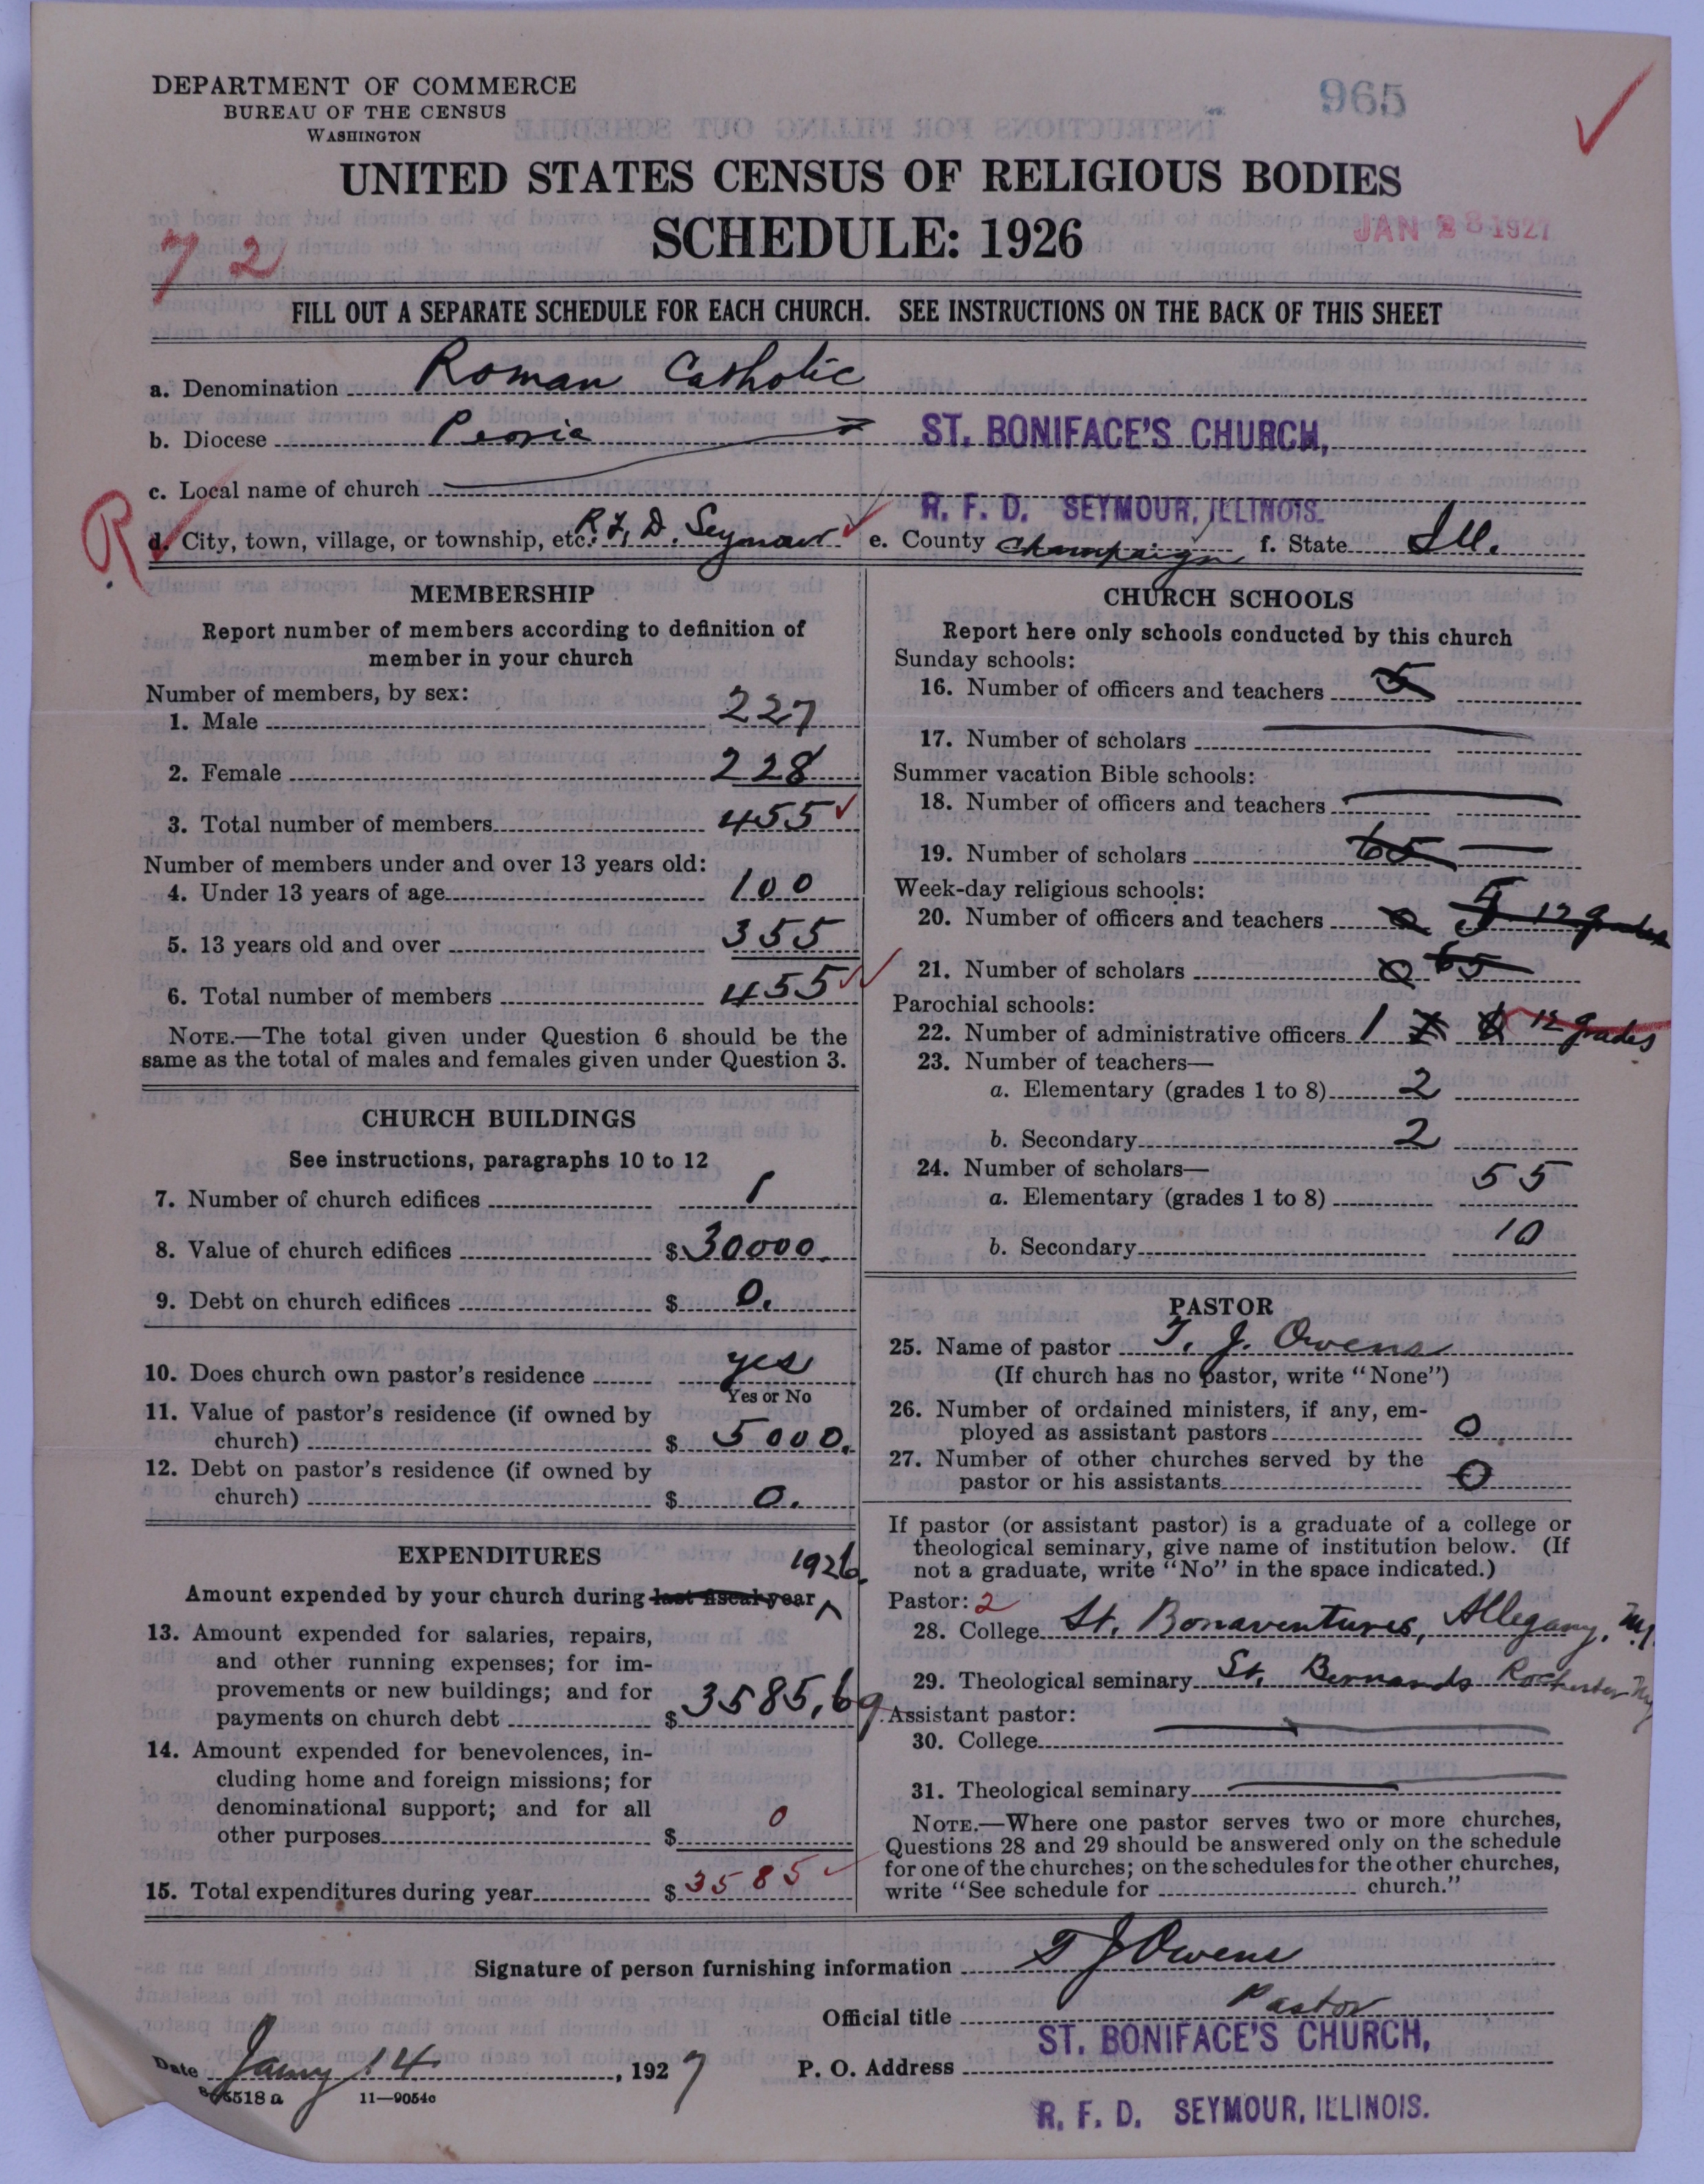 DEPARTMENT OF COMMERCE
BUREAU OF THE CENSUS
WASHINGTON
965
UNITED STATES CENSUS OF RELIGIOUS BODIES
SCHEDULE: 1926
JAN 28 1927
72
FILL OUT A SEPARATE SCHEDULE FOR EACH CHURCH. SEE INSTRUCTIONS ON THE BACK OF THIS SHEET
a. Denomination Roman Catholic
b. Diocese Peoria ST. BONIFACE'S CHURCH,
c. Local name of church
R. F. D. SEYMOUR, ILLINOIS.
R
d. City, town, village, or township, etc. R.F.D. Seymour e. County Champaign f. State Ill.
MEMBERSHIP
Report number of members according to definition of
member in your church
Number of members, by sex:
1. Male 227
2. Female 228
3. Total number of members 455
Number of members under and over 13 years old:
4. Under 13 years of age 100
5. 13 years old and over 355
6. Total number of members 455
NOTE.—The total given under Question 6 should be the
same as the total of males and females given under Question 3.
CHURCH BUILDINGS
See instructions, paragraphs 10 to 12
7. Number of church edifices 1
8. Value of church edifices $30000.
9. Debt on church edifices $ 0.
10. Does church own pastor's residence yes
Yes or No
11. Value of pastor's residence (if owned by
church) $ 5000.
12. Debt on pastor's residence (if owned by
church) $ 0.
EXPENDITURES
1926.
Amount expended by your church during last fiscal year
13. Amount expended for salaries, repairs,
and other running expenses; for im-
provements or new buildings; and for
payments on church debt $ 3585.69
14. Amount expended for benevolences, in-
cluding home and foreign missions; for
denominational support; and for all
other purposes $ 0
15. Total expenditures during year $ 3585
CHURCH SCHOOLS
Report here only schools conducted by this church
Sunday schools:
16. Number of officers and teachers 5
17. Number of scholars
Summer vacation Bible schools:
18. Number of officers and teachers
19. Number of scholars 65
Week-day religious schools:
20. Number of officers and teachers 0 5 12 grades
21. Number of scholars 0 65
Parochial schools:
22. Number of administrative officers 1 12 grades
23. Number of teachers—
a. Elementary (grades 1 to 8) 2
b. Secondary 2
24. Number of scholars—
a. Elementary (grades 1 to 8) 55
b. Secondary 10
PASTOR
25. Name of pastor T. J. Owens
(If church has no pastor, write "None")
26. Number of ordained ministers, if any, em-
ployed as assistant pastors 0
27. Number of other churches served by the
pastor or his assistants 0
If pastor (or assistant pastor) is a graduate of a college or
theological seminary, give name of institution below. (If
not a graduate, write "No" in the space indicated.)
Pastor: 2
28. College St. Bonaventures, Allegany, N.Y.
29. Theological seminary St. Bernards Rochester NY
Assistant pastor:
30. College
31. Theological seminary
NOTE.—Where one pastor serves two or more churches,
Questions 28 and 29 should be answered only on the schedule
for one of the churches; on the schedules for the other churches,
write "See schedule for church."
Signature of person furnishing information T J Owens
Official title Pastor
ST. BONIFACE'S CHURCH,
Date Jany 14, 1927 P. O. Address
11—9054c
R. F. D. SEYMOUR, ILLINOIS.